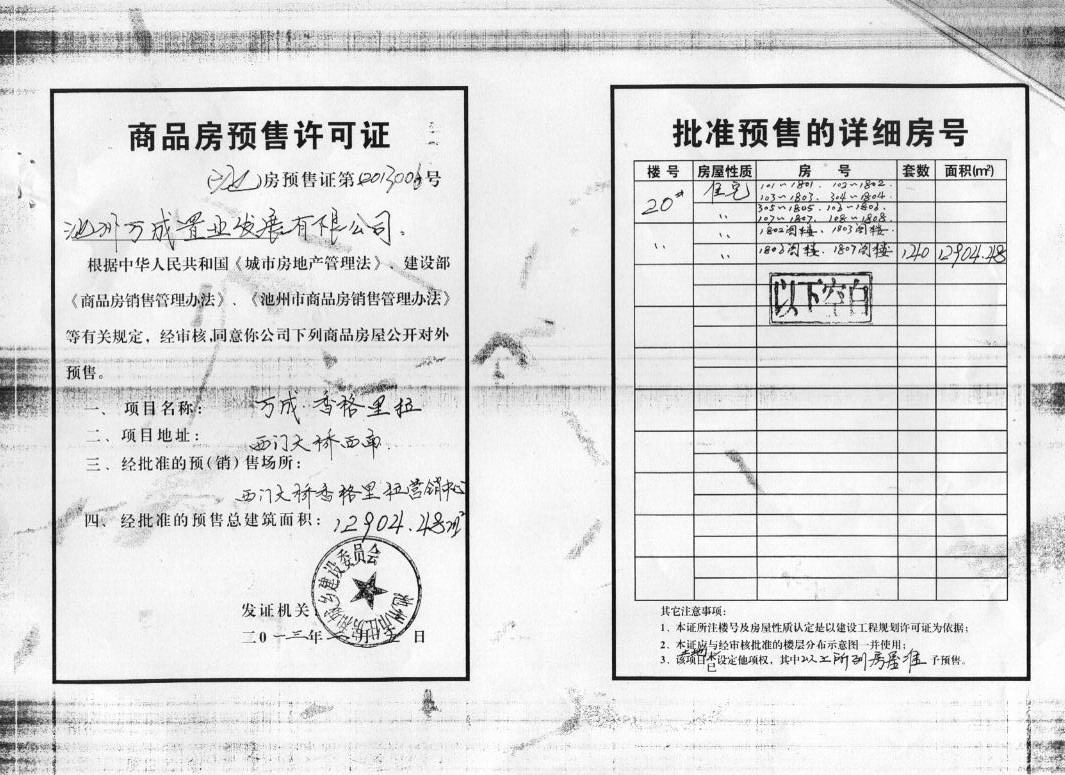 商品房预售许可证
(池)房预售证第(2013006)号
池州万成置业发展有限公司.
根据中华人民共和国《城市房地产管理法》、建设部
《商品房销售管理办法》、《池州市商品房销售管理办法》
等有关规定，经审核，同意你公司下列商品房屋公开对外
预售。
一、项目名称：万成·香格里拉
二、项目地址：西门大桥西南.
三、经批准的预(销)售场所：
西门大桥香格里拉营销中心
四、经批准的预售总建筑面积：12904.48m²
池州市住房和城乡建设委员会
发证机关：
二〇一三年 月 日
批准预售的详细房号
楼号 房屋性质 房号 套数 面积(㎡)
20# 住宅 101~1801. 102~1802.
103~1803. 304~1804.
〃 305~1805. 106~1806.
107~1807. 108~1808.
〃 〃 1802阁楼. 1803阁楼.
〃 1806阁楼. 1807阁楼 140 12904.48
以下空白
其它注意事项：
1、本证所注楼号及房屋性质认定是以建设工程规划许可证为依据；
2、本证应与经审核批准的楼层分布示意图一并使用；
3、该项目土地未已设定他项权，其中以上所列房屋准予预售。